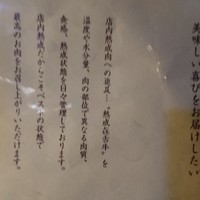 美味しい喜びをお届けしたい
店内熟成肉への追及―“熟成在古牛”を
温度や水分量、肉の部位で異なる肉質、
食感、熟成状態を日々管理しております。
店内熟成だからこそベストの状態で
最高のお肉をお召し上がりいただけます。